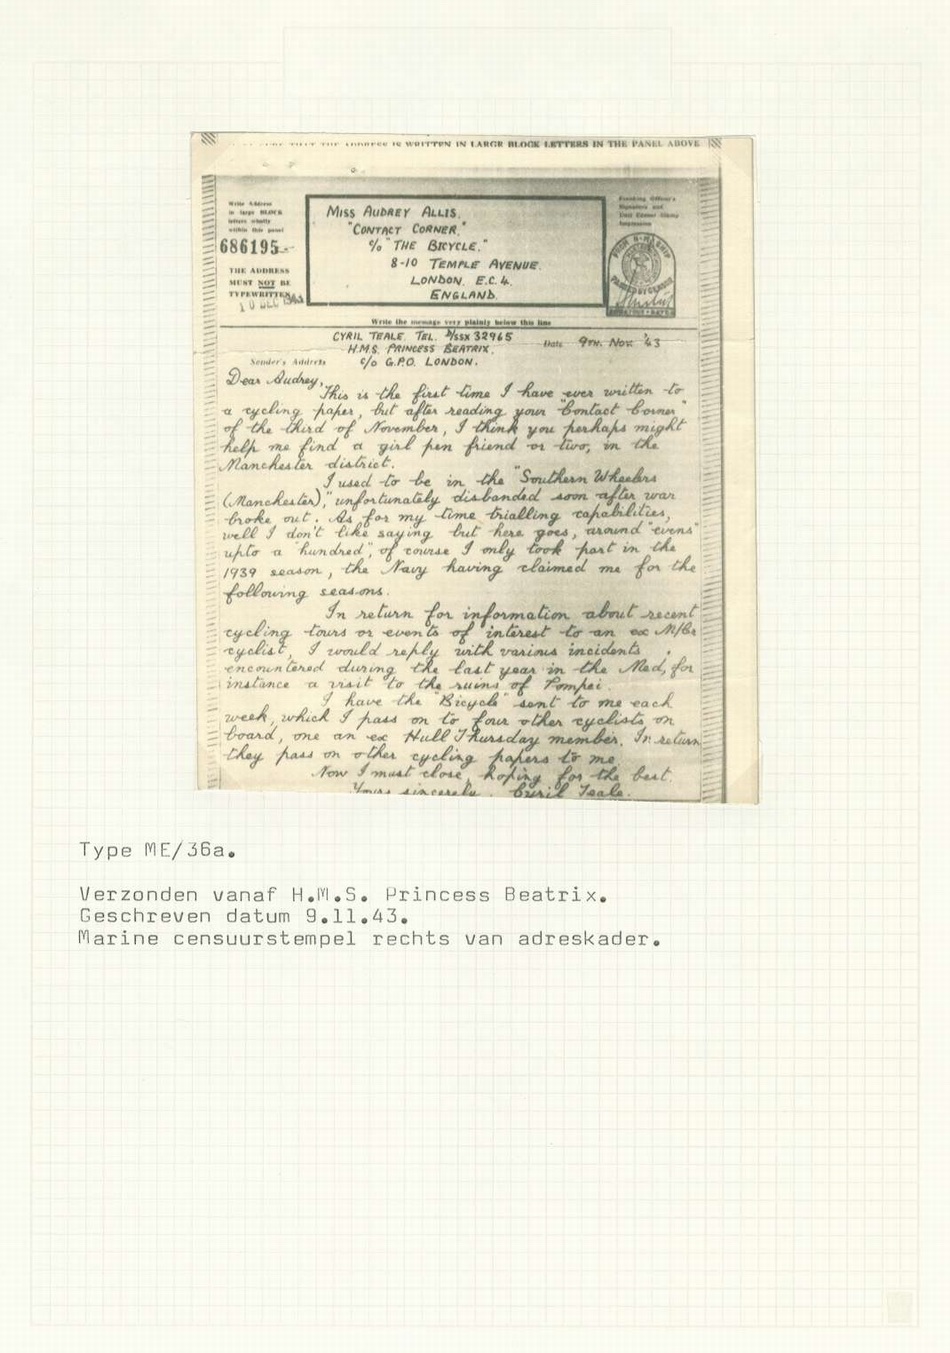 THAT THE ADDRESS IS WRITTEN IN LARGE BLOCK LETTERS IN THE PANEL ABOVE
Write Address
in large BLOCK
letters wholly
within this panel
686195
THE ADDRESS
MUST NOT BE
TYPEWRITTEN
10 DEC 1943
MISS AUDREY ALLIS,
"CONTACT CORNER,"
c/o "THE BICYCLE."
8-10 TEMPLE AVENUE.
LONDON. E.C.4.
ENGLAND.
FROM H.M. SHIP
Write the message very plainly below this line
CYRIL TEALE. TEL. D/SSX 32965
H.M.S. PRINCESS BEATRIX.
c/o G.P.O. LONDON.
Sender's Address
Date 9TH. Nov. '43
Dear Audrey,
This is the first time I have ever written to
a cycling paper, but after reading your "Contact Corner"
of the third of November, I think you perhaps might
help me find a girl pen friend or two, in the
Manchester district.
I used to be in the "Southern Wheelers
(Manchester)," unfortunately disbanded soon after war
broke out. As for my time trialling capabilities,
well I don't like saying but here goes, around "evens"
upto a "hundred", of course I only took part in the
1939 season, the Navy having claimed me for the
following seasons.
In return for information about recent
cycling tours or events of interest to an ex M/Cr
cyclist, I would reply with various incidents
encountered during the last year in the Med, for
instance a visit to the ruins of Pompei.
I have the "Bicycle" sent to me each
week, which I pass on to four other cyclists on
board, one an ex Hull Thursday member. In return
they pass on other cycling papers to me.
Now I must close, hoping for the best.
Yours sincerely, Cyril Teale.
Type ME/36a.
Verzonden vanaf H.M.S. Princess Beatrix.
Geschreven datum 9.11.43.
Marine censuurstempel rechts van adreskader.